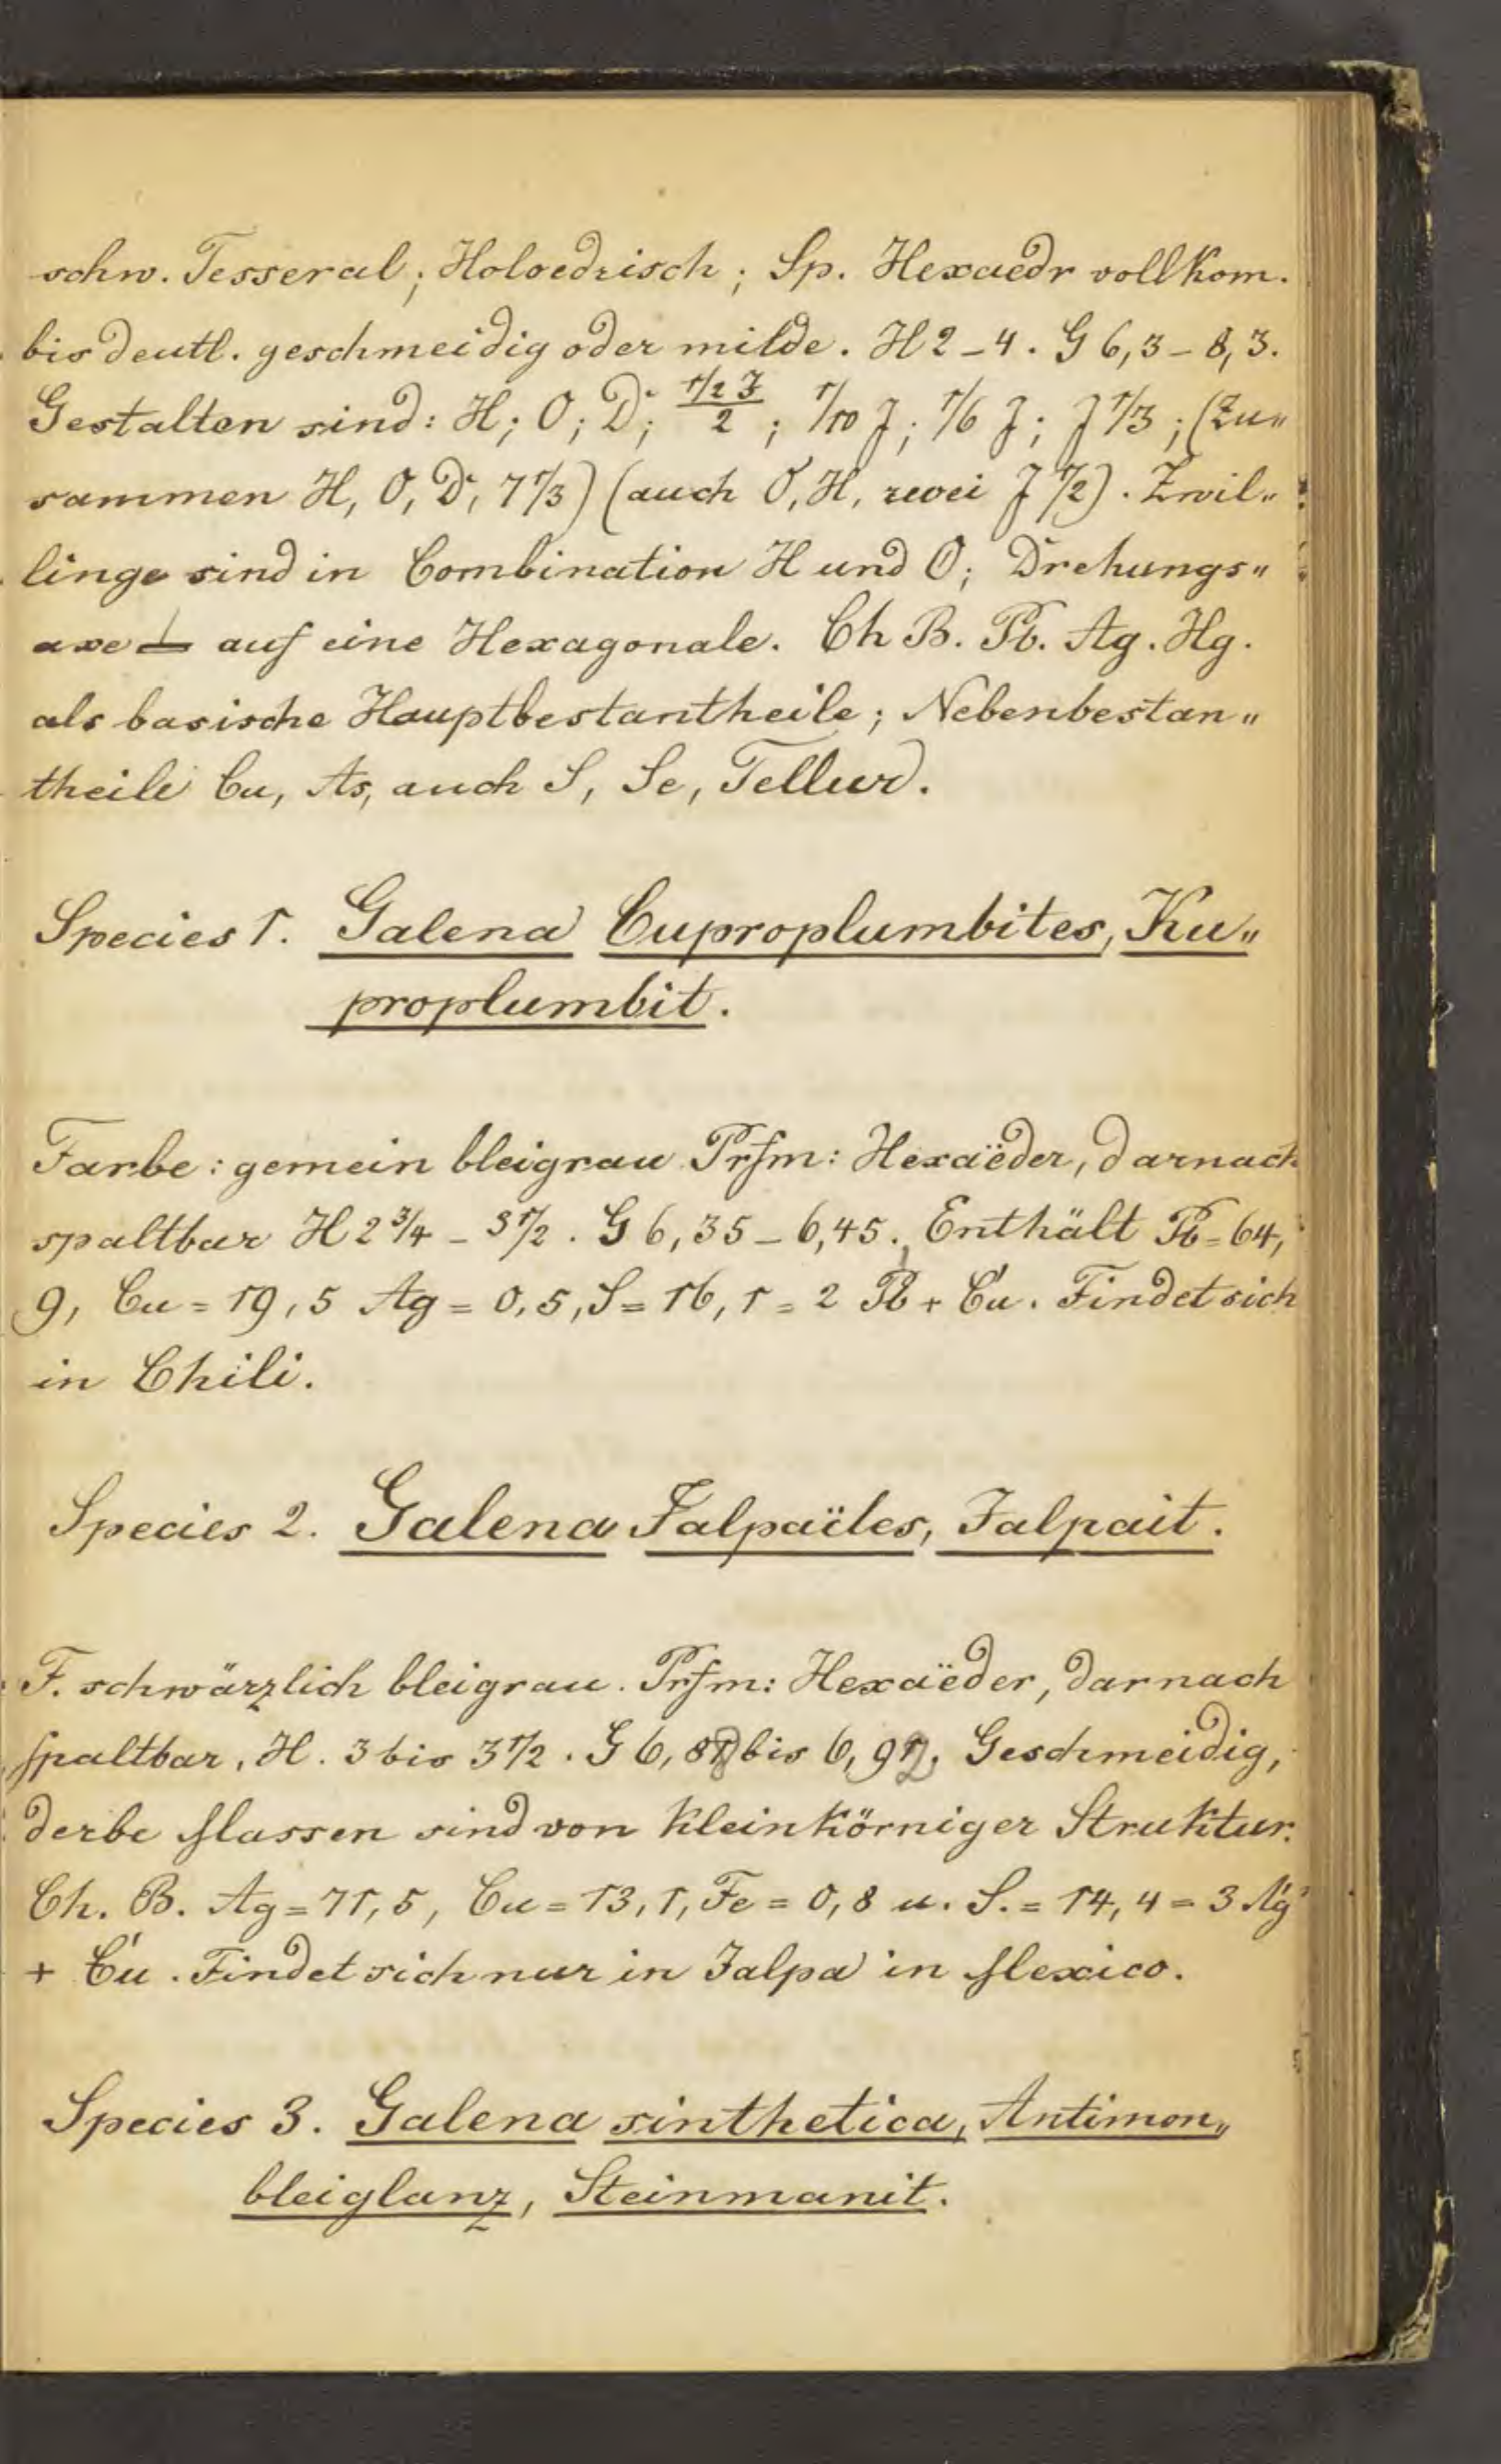 schw. Tesseral; Holoedrisch; Sp. Hexaedr vollkom.
bis deutl. geschmeidig oder milde. H 2–4. G 6,3–8,3.
Gestalten sind: H; O; D; (1/2 J)/2; 1/10 J; 1/6 J; J 1/3; (Zu„
sammen H, O, D, 7 1/3) (auch O, H, zwei J 1/2). Zwil„
linge sind in Combination H und O; Drehungs„
axe ⊥ auf eine Hexagonale. Ch B. Pb. Ag. Hg.
als basische Hauptbestantheile; Nebenbestan„
theile Cu, As, auch S, Se, Tellur.
Species 1. Galena Cuproplumbites, Ku„
proplumbit.
Farbe: gemein bleigrau Prfm: Hexaëder, darnach
spaltbar H 2 3/4 – 3 1/2. G 6,35–6,45. Enthält Pb=64,
9, Cu=19,5 Ag=0,5, S=16,1 = 2 Pb + Ću. Findet sich
in Chili.
Species 2. Galena Jalpaïtes, Jalpait.
F. schwärzlich bleigrau. Prfm: Hexaëder, darnach
spaltbar. H. 3 bis 3 1/2. G 6, bis 6, Geschmeidig,
derbe Massen sind von kleinkörniger Struktur.
Ch. B. Ag=71,5, Cu=13,1, Fe=0,8 u. S.=14,4 = 3 Ag'
+ Ću. Findet sich nur in Jalpa in Mexico.
Species 3. Galena sinthetica, Antimon„
bleiglanz, Steinmanit.